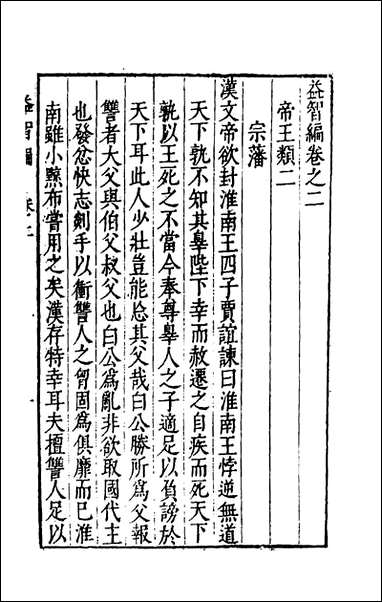 益智編卷之二
帝王類二
宗藩
漢文帝欲封淮南王四子賈誼諫曰淮南王悖逆無道
天下孰不知其辠陛下幸而赦遷之自疾而死天下
孰以王死之不當今奉尊辠人之子適足以負謗於
天下耳此人少壯豈能忘其父哉白公勝所爲父報
讐者大父與伯父叔父也白公爲亂非欲取國代主
也發忿快志剡手以衝讐人之胷固爲俱靡而已淮
南雖小黥布嘗用之矣漢存特幸耳夫擅讐人足以
益智編 卷二